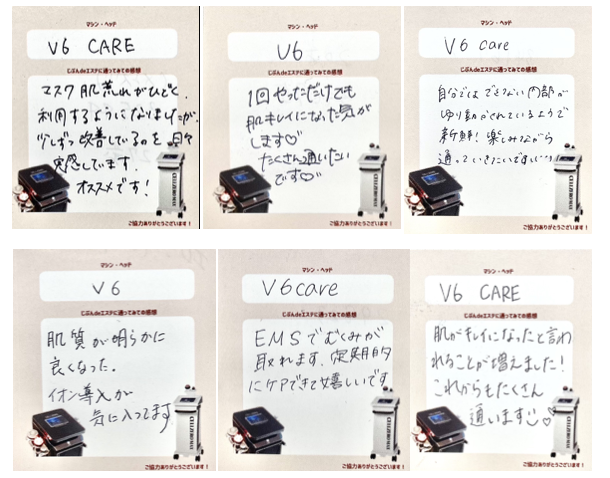 マシン・ヘッド
V6 CARE
じぶんdeエステに通ってみての感想
マスク肌荒れがひどく、
利用するようになりましたが、
少しずつ改善しているのを日々
実感しています。
オススメです！
CELLZERO
ご協力ありがとうございます！
マシン・ヘッド
V6
じぶんdeエステに通ってみての感想
1回やっただけでも
肌キレイになった気が
します♡
たくさん通いたい
です♡
ご協力ありがとうございます！
マシン・ヘッド
V6 care
じぶんdeエステに通ってみての感想
自分ではできない内部が
ゆり動かされているようで
新鮮！楽しみながら
通っていきたいです
ご協力ありがとうございます！
マシン・ヘッド
V6
じぶんdeエステに通ってみての感想
肌質が明らかに
良くなった。
イオン導入が
気に入ってます
ご協力ありがとうございます！
マシン・ヘッド
V6care
じぶんdeエステに通ってみての感想
EMSでむくみが
取れます。定期的
にケアできて嬉しいです
ご協力ありがとうございます！
マシン・ヘッド
V6 CARE
じぶんdeエステに通ってみての感想
肌がキレイになったと言わ
れることが増えました！
これからもたくさん
通います♡
ご協力ありがとうございます！